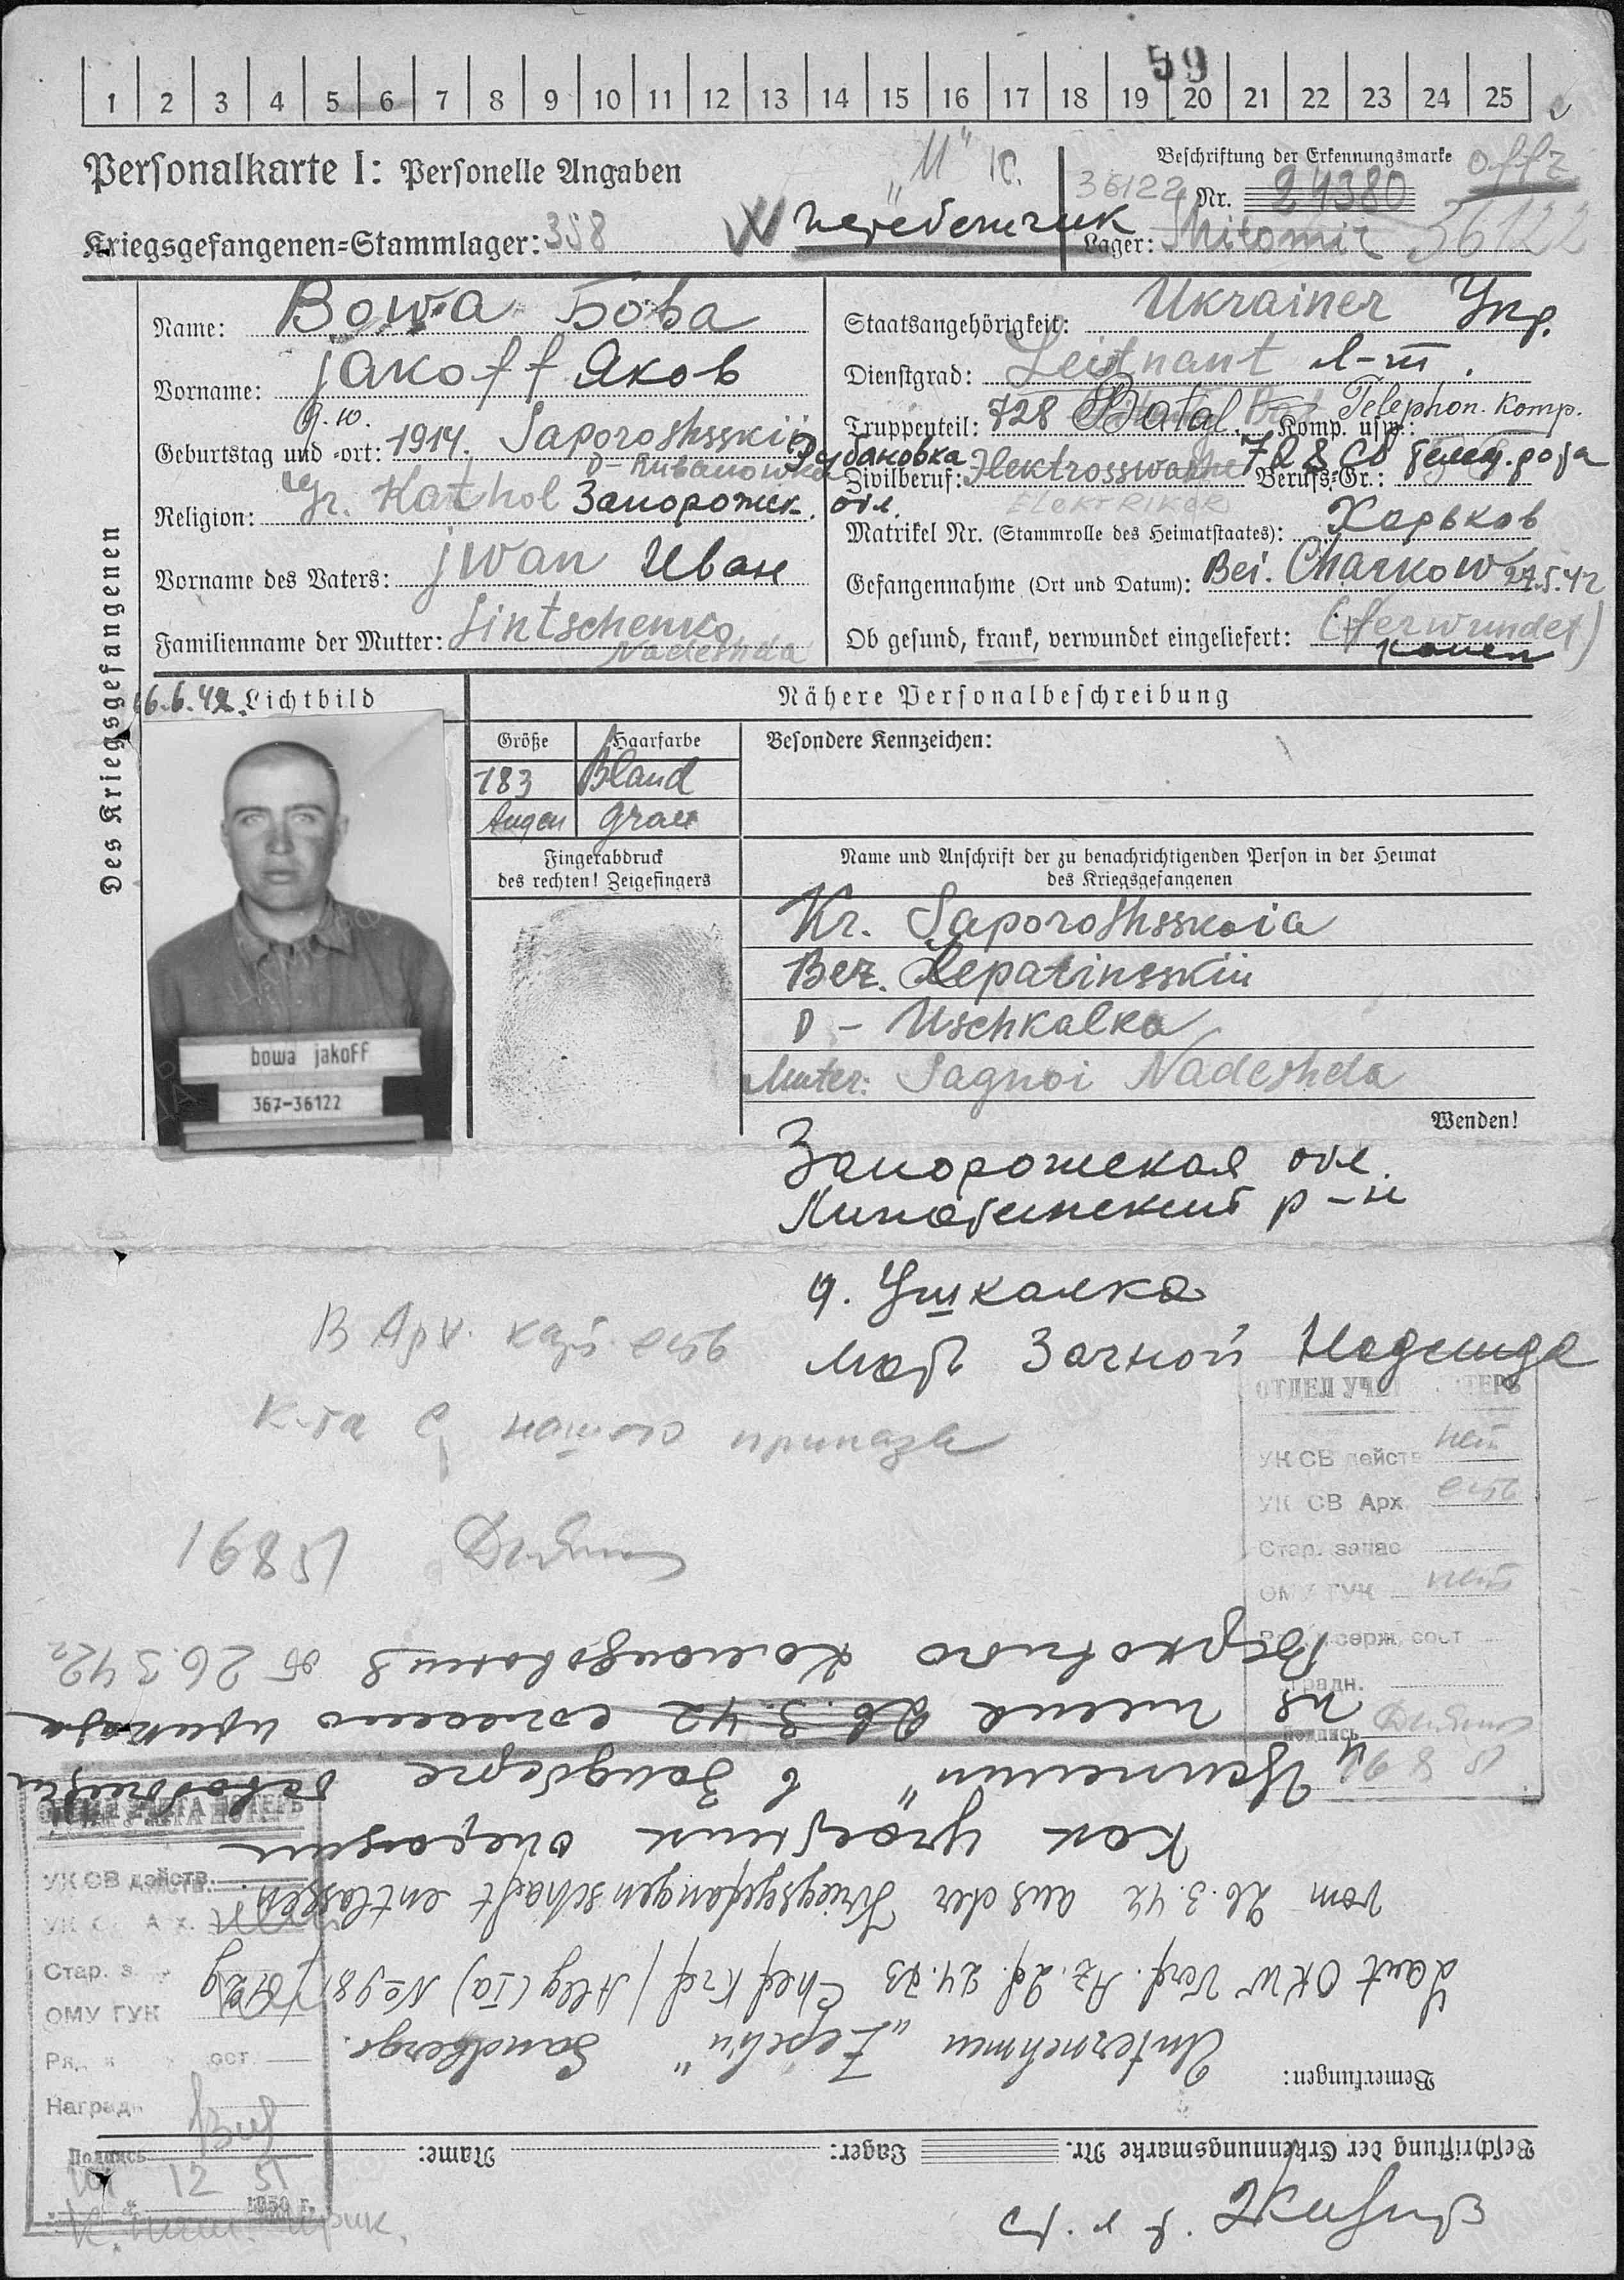 59
1 2 3 4 5 6 7 8 9 10 11 12 13 14 15 16 17 18 19 20 21 22 23 24 25
Personalkarte I: Personelle Angaben
Beschriftung der Erkennungsmarke offz
36122 Nr. 24380
Kriegsgefangenen=Stammlager: 358
Lager: Shitomir 36122
Des Kriegsgefangenen
Name: Bowa Бова
Vorname: jakoff Яков
9.10.
Geburtstag und =ort: 1914. Saporoshsskii
D- Rubanowka Рубановка
Religion: gr. Kathol Запорожск. обл.
Vorname des Vaters: jwan Иван
Familienname der Mutter: Sintschenko
Nadeshda
Staatsangehörigkeit: Ukrainer Укр.
Dienstgrad: Leitnant л-т.
Truppenteil: 728 Batal. Komp. usw.: Telephon. Komp.
Zivilberuf: Elektrosswarke Berufs=Gr.:
ELEKTRIKER
Matrikel Nr. (Stammrolle des Heimatstaates): Харьков
Gefangennahme (Ort und Datum): Bei. Charkow 27.5.42
Ob gesund, krank, verwundet eingeliefert: (Verwundet)
16.6.42. Lichtbild
Nähere Personalbeschreibung
Größe Haarfarbe Besondere Kennzeichen:
183 Bland
Augen grau
Fingerabdruck
des rechten! Zeigefingers
Name und Anschrift der zu benachrichtigenden Person in der Heimat
des Kriegsgefangenen
Kr. Saporoshsskaia
Bez. Lepatinsskii
D - Uschkalka
Muter: Sagnoi Nadeshda
Wenden!
bowa jakoff
367-36122
Запорожская обл.
Липатинский р-н
д. Ушкалка
мать Загной Надежда
В Арх. карт. есть
к-та с нашего приказа
ОТДЕЛ УЧЕТА ПОТЕРЬ
УК СВ действ нет
УК СВ Арх. есть
Стар. запас
ОМУ ГУК нет
Подпись
Верховного Командования от 26.3.42 г
из плена 26.3.42 согласно приказа
"Цеппелин" в Зандберге освобожден
Как участник операции
vom 26.3.42 aus der Kriegsgefangenschaft entlassen.
Laut OKW Verf. Az. 2f. 24.73 Chef Krgf / Allg (Ia) No 981
Unternehmen "Zepelin" Sandberge.
Bemerkungen:
Beschriftung der Erkennungsmarke Nr. Lager: Name:
ОТДЕЛ УЧЕТА ПОТЕРЬ
УК СВ действ.
УК СВ Арх.
Стар. з
ОМУ ГУК
Наградн
Подпись
12 51
1950 г.